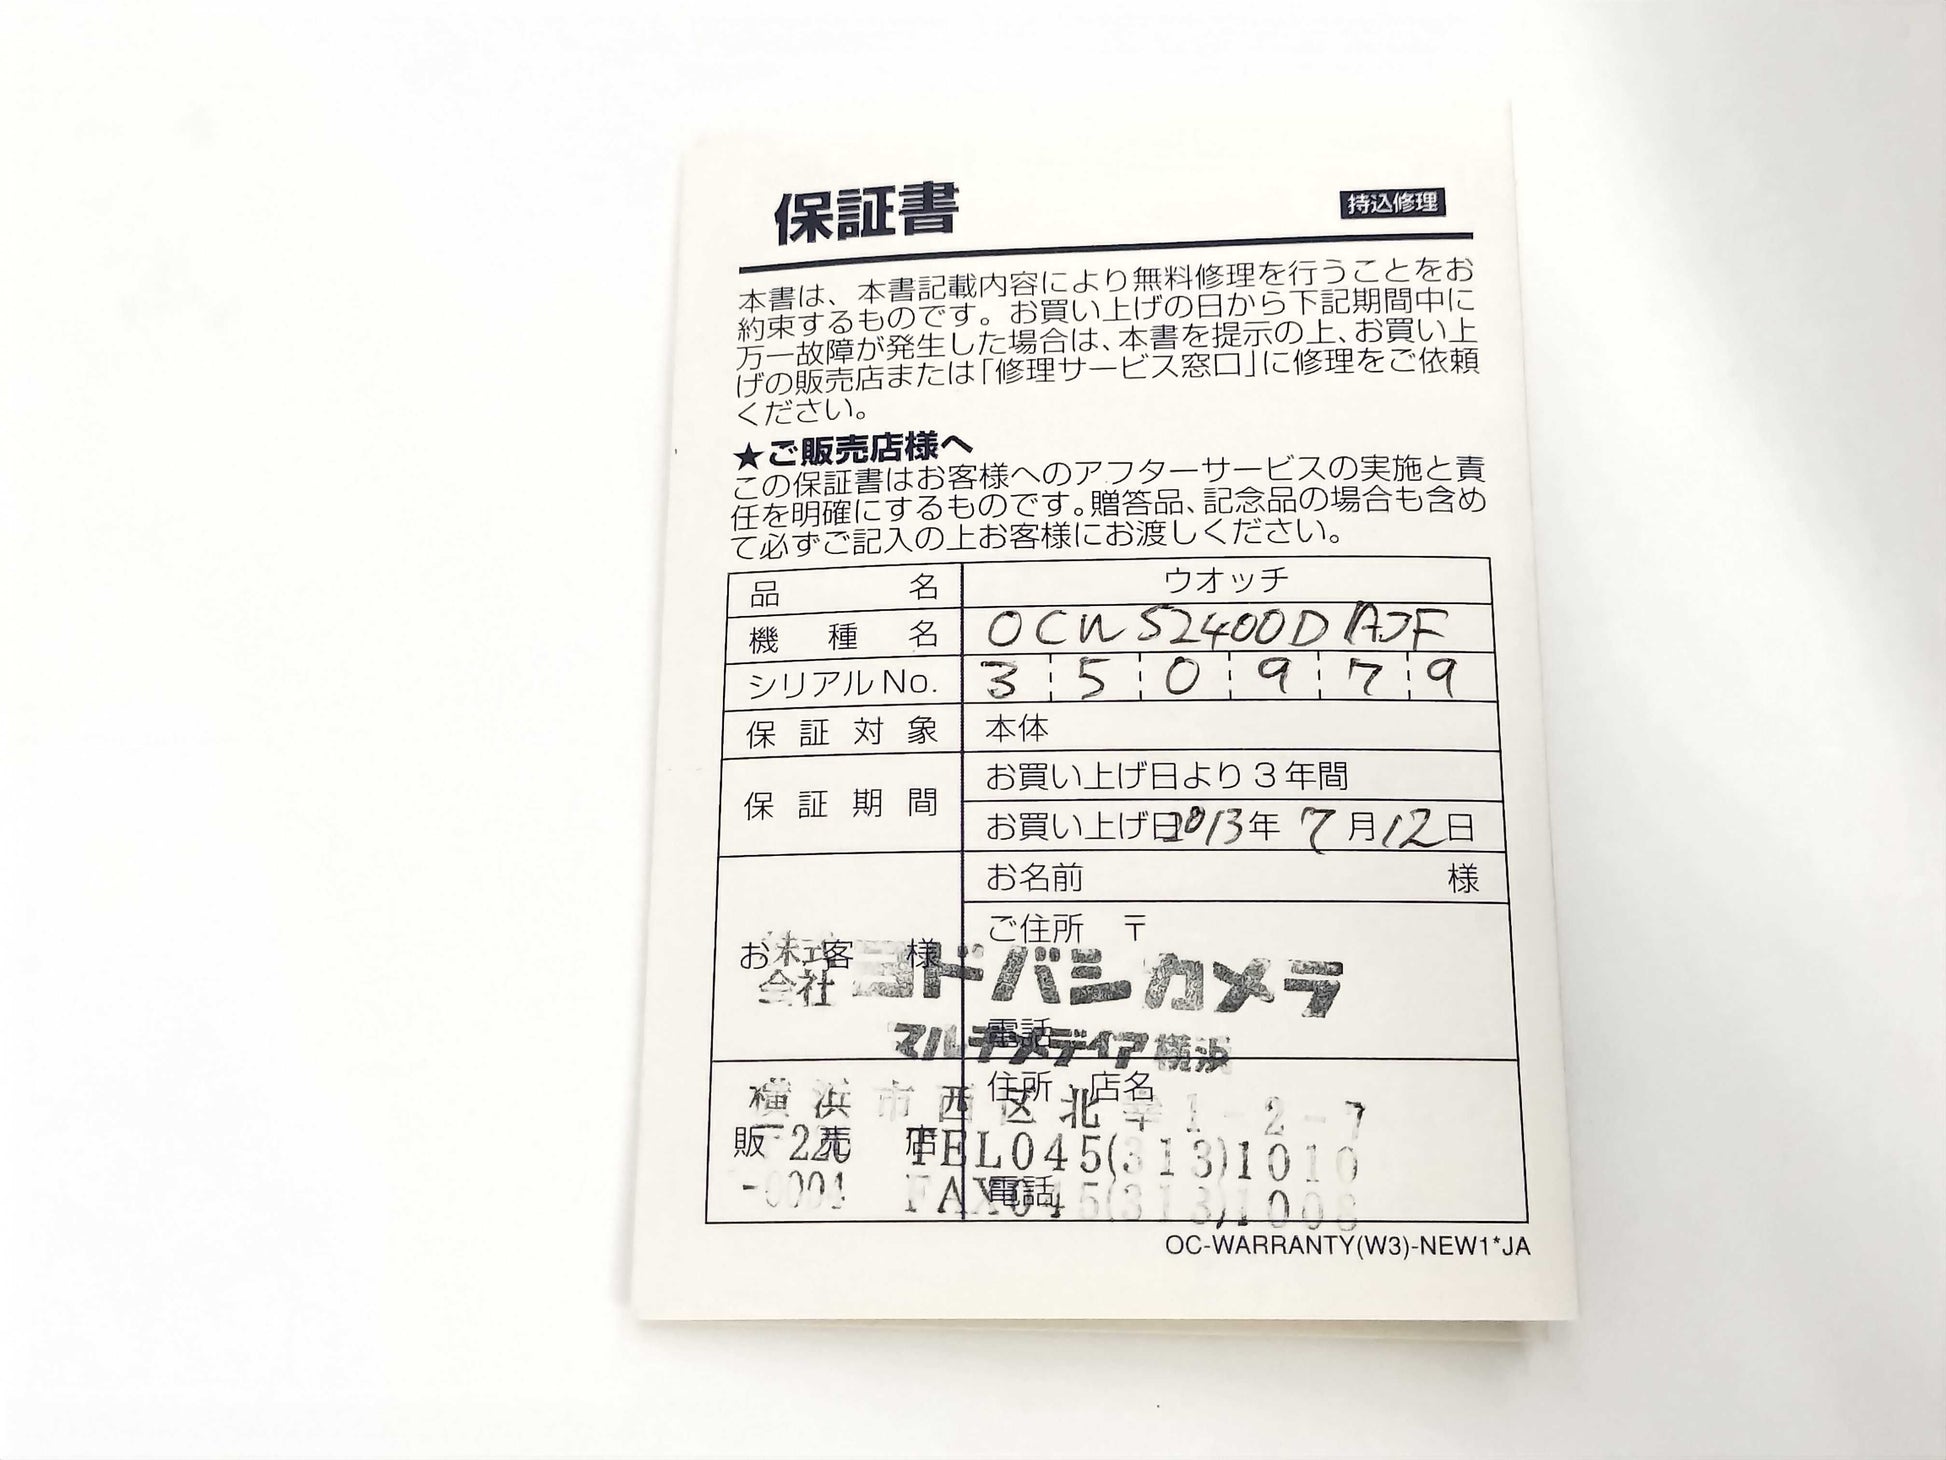 保証書
持込修理
本書は、本書記載内容により無料修理を行うことをお
約束するものです。お買い上げの日から下記期間中に
万一故障が発生した場合は、本書を提示の上、お買い上
げの販売店または「修理サービス窓口」に修理をご依頼
ください。
★ご販売店様へ
この保証書はお客様へのアフターサービスの実施と責
任を明確にするものです。贈答品、記念品の場合も含め
て必ずご記入の上お客様にお渡しください。
品名 ウオッチ
機種名 OCWS2400D 1AJF
シリアルNo. 3 5 0 9 7 9
保証対象 本体
保証期間 お買い上げ日より3年間
お買い上げ日 2013年 7月12日
お客様 お名前 様
ご住所 〒
株式会社 ヨドバシカメラ
電話
マルチメディア横浜
販売店 住所・店名
横浜市西区北幸1-2-7
〒220 TEL045(313)1010
-0004 FAX045(313)1008
電話
OC-WARRANTY(W3)-NEW1*JA